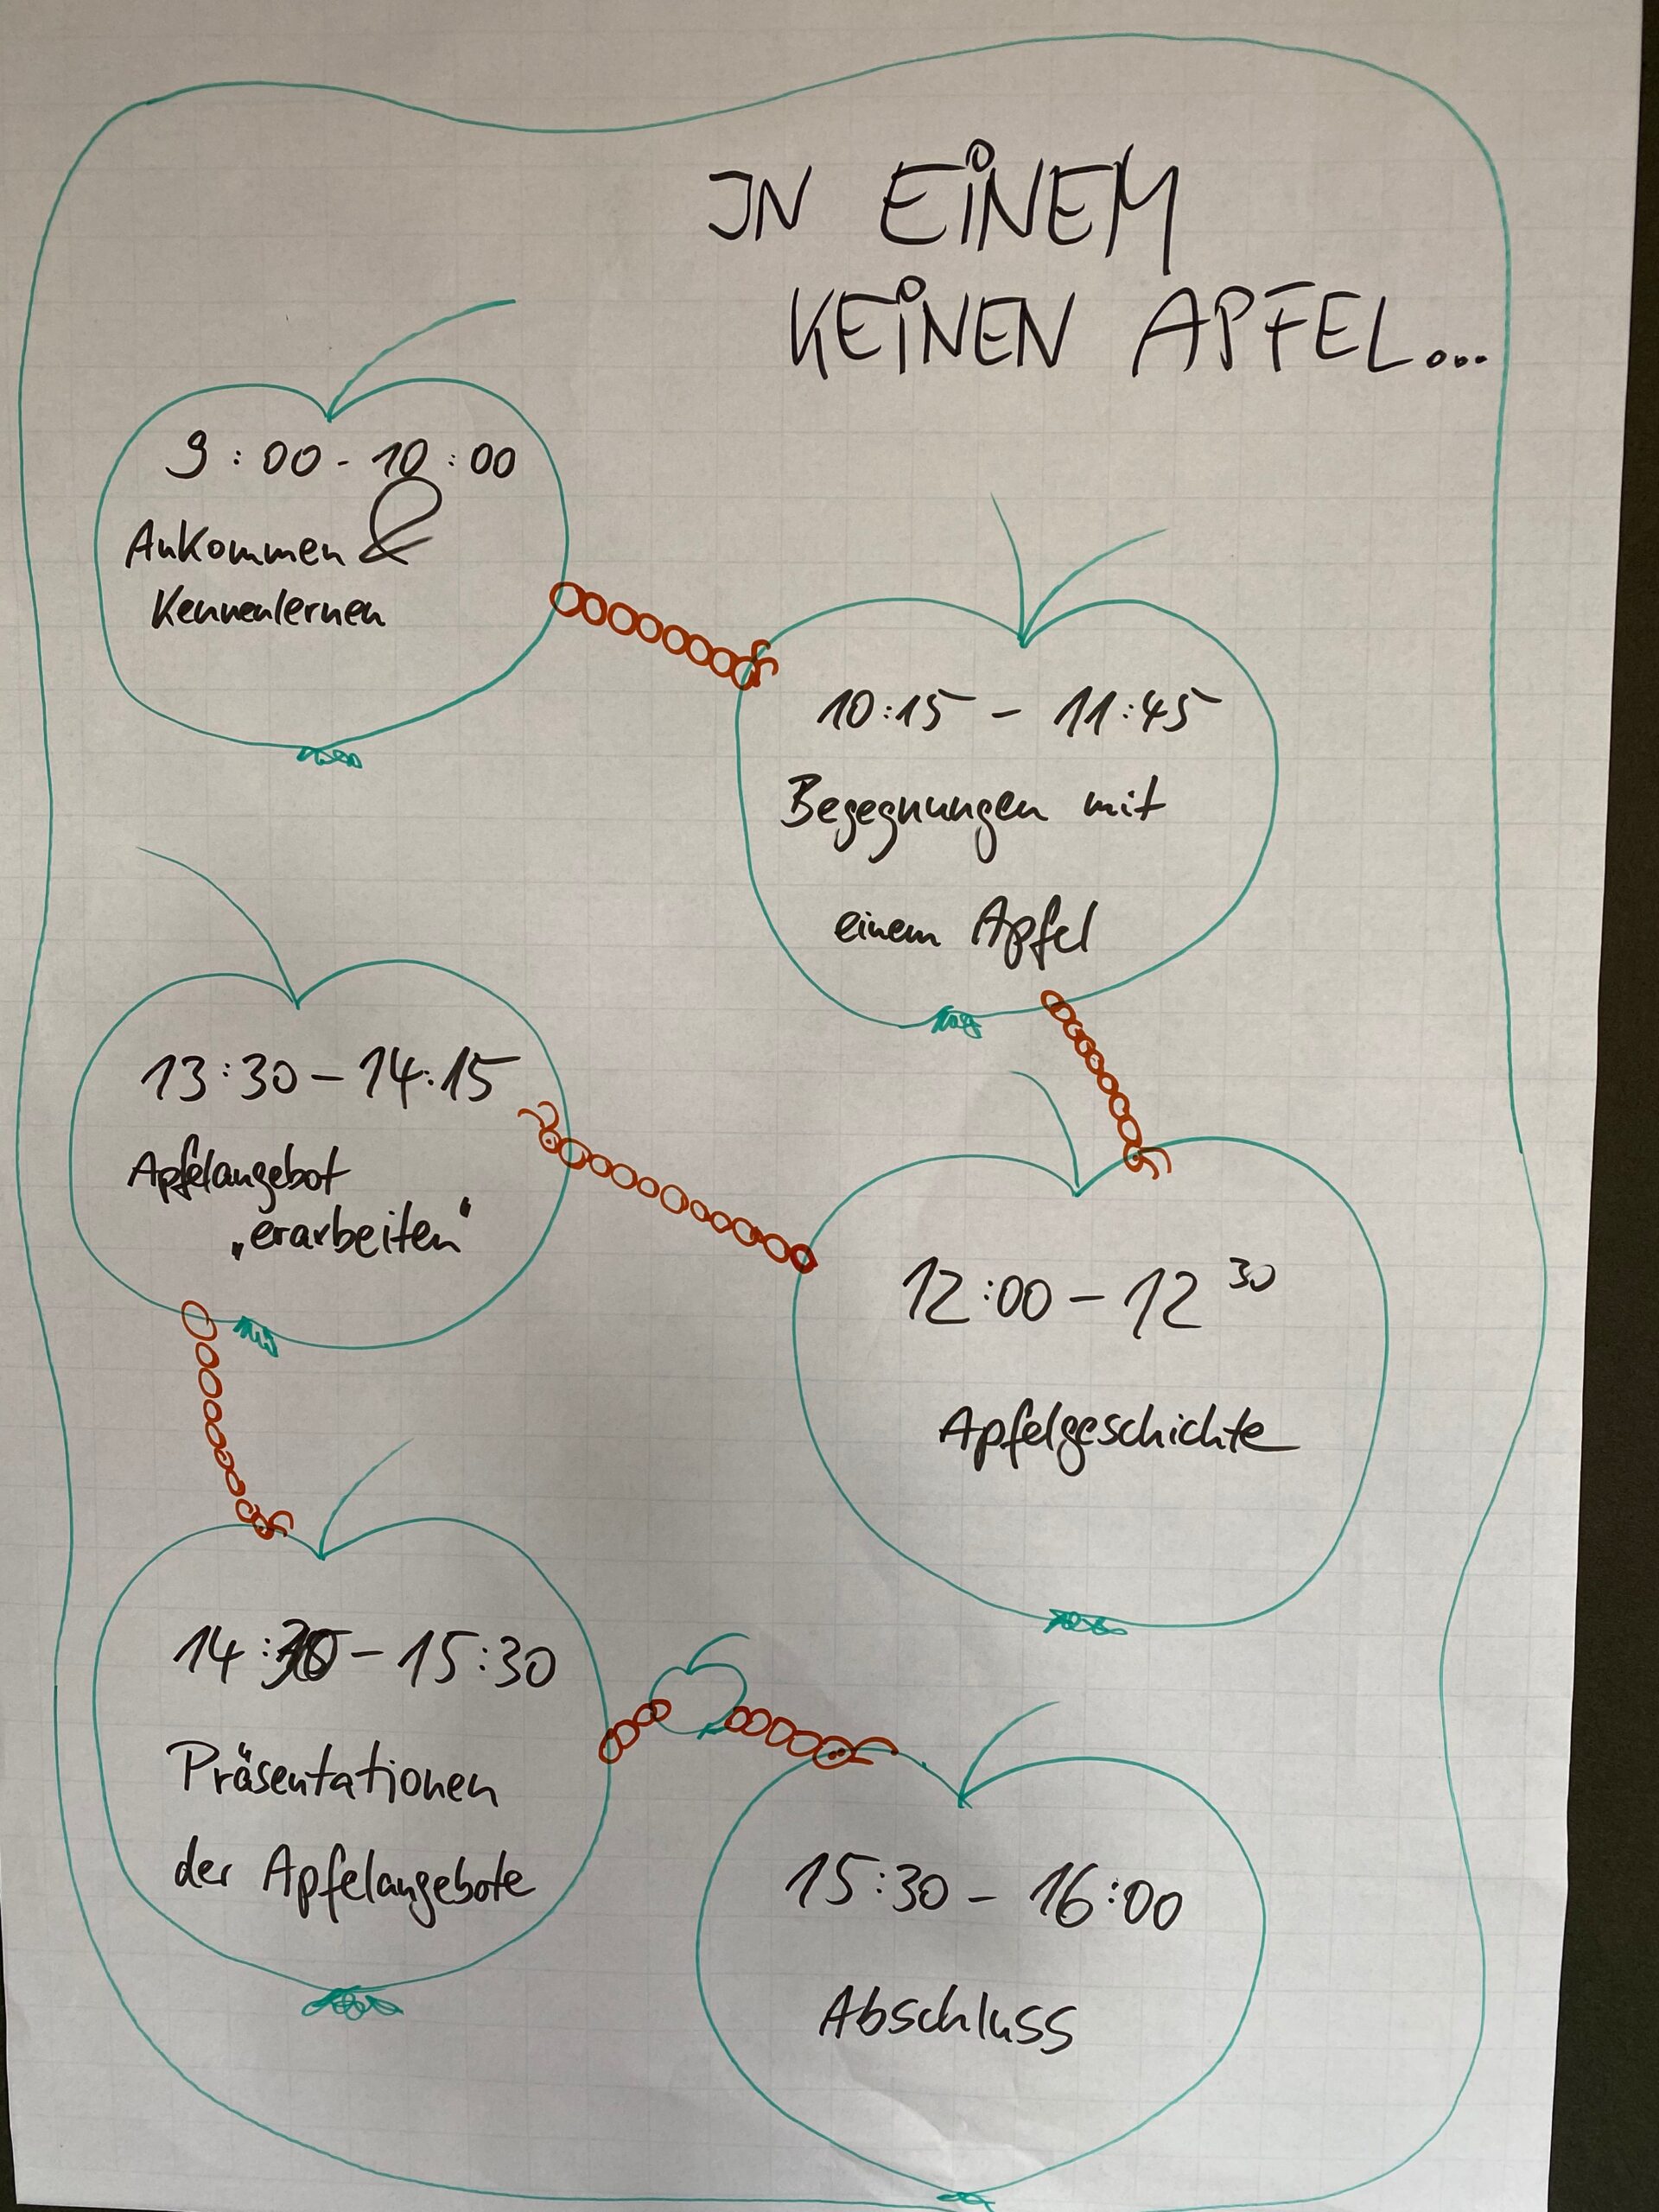 IN EINEM
KEINEN APFEL...
9:00 - 10:00
Ankommen &
Kennenlernen
10:15 - 11:45
Begegnungen mit
einem Apfel
12:00 - 12 30
Apfelgeschichte
13:30 - 14:15
Apfelangebot
„erarbeiten"
- 15:30
Präsentationen
der Apfelangebote
15:30 - 16:00
Abschluss